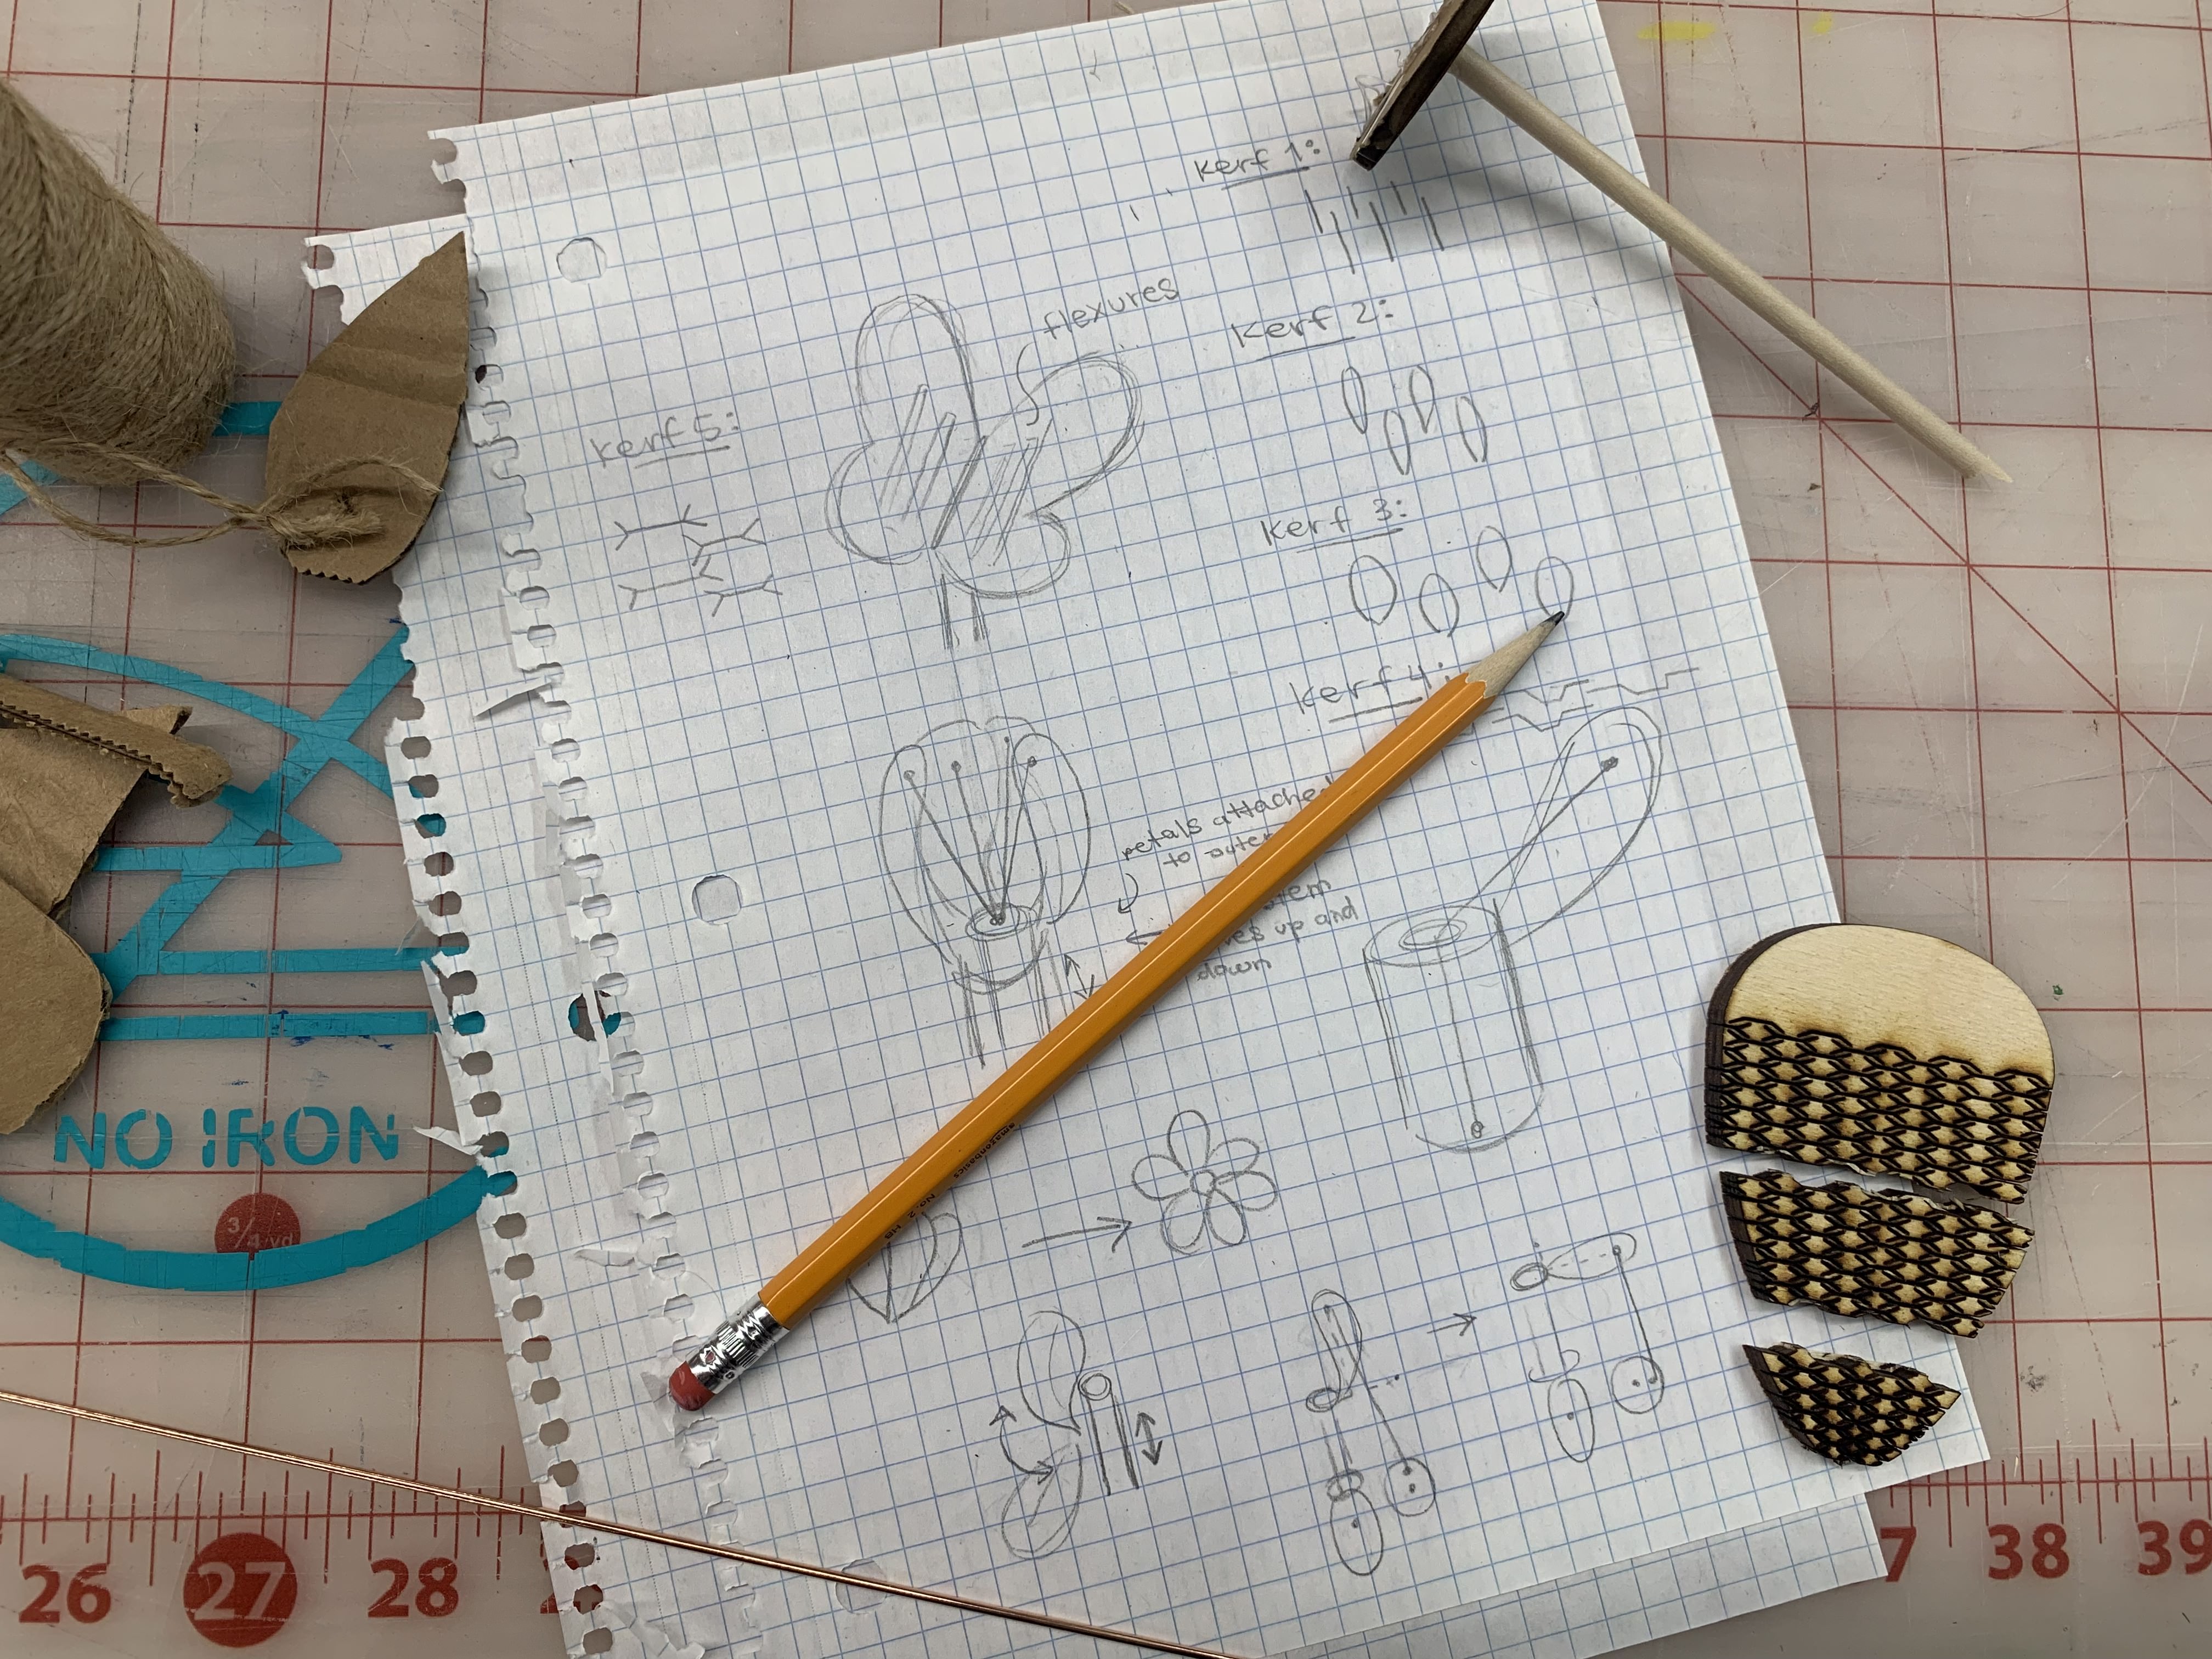 Kerf 1:
flexures
Kerf 2:
Kerf 5:
Kerf 3:
Kerf 4:
petals attached
to outer
stem
up and
down
amazonbasics No. 2 HB
NO IRON
3/4 yd
26 27 28
38 39